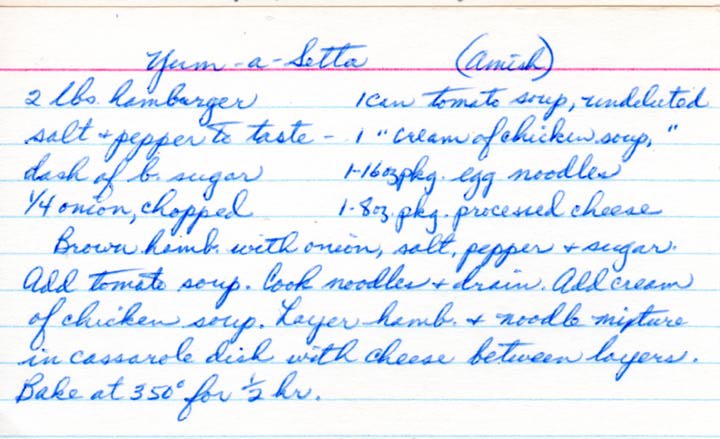 Yum-a-Setta (Amish)
2 lbs. hamburger 1 can tomato soup, undeluted
salt + pepper to taste - 1 " cream of chicken soup, "
dash of b. sugar 1-16oz pkg. egg noodles
1/4 onion, chopped 1-8oz. pkg. processed cheese
Brown hamb. with onion, salt, pepper + sugar.
Add tomato soup. Cook noodles + drain. Add cream
of chicken soup. Layer hamb. + noodle mixture
in cassarole dish with cheese between layers.
Bake at 350° for 1/2 hr.